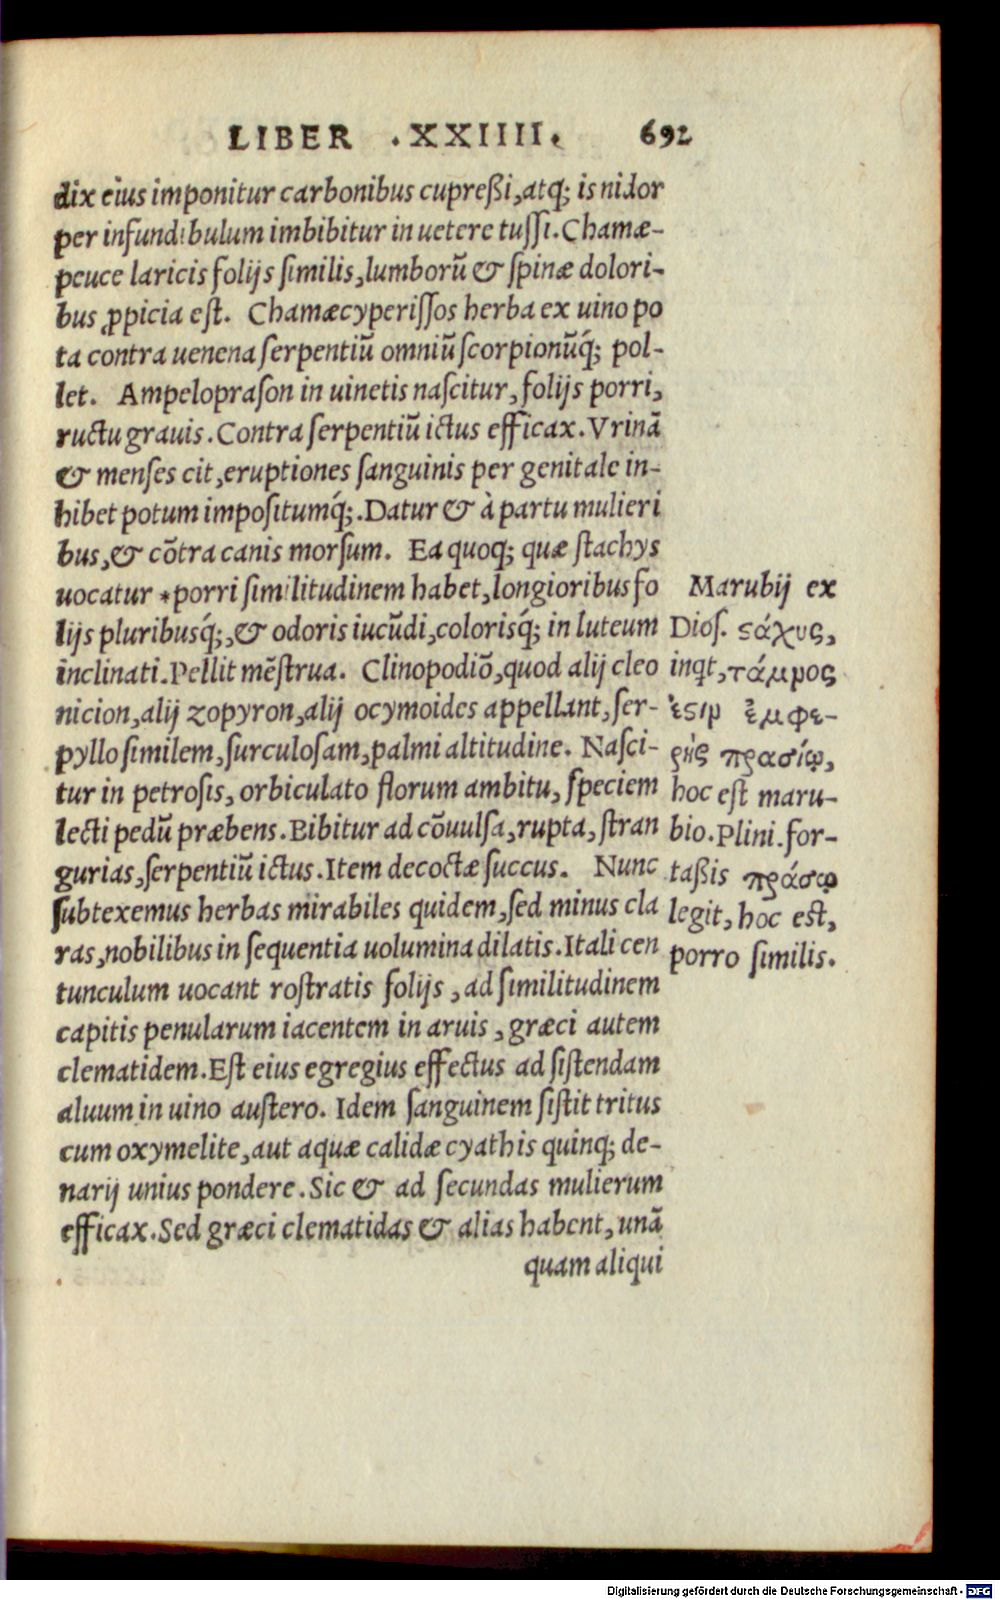 LIBER .XXIIII. 692
dix eius imponitur carbonibus cupreßi,atq; is nidor
per infundibulum imbibitur in uetere tuſſi.Chamæ-
peuce laricis folijs ſimilis,lumborũ & ſpinæ dolori-
bus ꝓpicia eſt. Chamæcyperiſſos herba ex uino po
ta contra uenena ſerpentiũ omniũ ſcorpionũq́; pol-
let. Ampelopraſon in uinetis naſcitur, folijs porri,
ructu grauis.Contra ſerpentiũ ictus efficax.Vrinã
& menſes cit,eruptiones ſanguinis per genitale in-
hibet potum impoſitumq́;.Datur & à partu mulieri
bus,& cõtra canis morſum. Ea quoq; quæ ſtachys
uocatur *porri ſimilitudinem habet,longioribus fo
lijs pluribusq́;,& odoris iucũdi,colorisq́; in luteum
inclinati.Pellit mẽſtrua. Clinopodiõ,quod alij cleo
nicion,alij zopyron,alij ocymoides appellant,ſer-
pyllo ſimilem,ſurculoſam,palmi altitudine. Naſci-
tur in petroſis, orbiculato florum ambitu, ſpeciem
lecti pedũ præbens.Bibitur ad cõuulſa,rupta,ſtran
gurias,ſerpentiũ ictus.Item decoctæ ſuccus. Nunc
ſubtexemus herbas mirabiles quidem,ſed minus cla
ras,nobilibus in ſequentia uolumina dilatis.Itali cen
tunculum uocant roſtratis folijs , ad ſimilitudinem
capitis penularum iacentem in aruis , græci autem
clematidem.Eſt eius egregius effectus ad ſiſtendam
aluum in uino auſtero. Idem ſanguinem ſiſtit tritus
cum oxymelite,aut aquæ calidæ cyathis quinq; de-
narij unius pondere.Sic & ad ſecundas mulierum
efficax.Sed græci clematidas & alias habent, unã
quam aliqui
Marubij ex
Dioſ. ϛάχυς,
inqt,τάμνος
ἐϛιν ἐμφε-
ρὴς πρασίῳ,
hoc eſt maru-
bio.Plini.for-
taßis πράσῳ
legit, hoc eſt,
porro ſimilis.
Digitalisierung gefördert durch die Deutsche Forschungsgemeinschaft - DFG